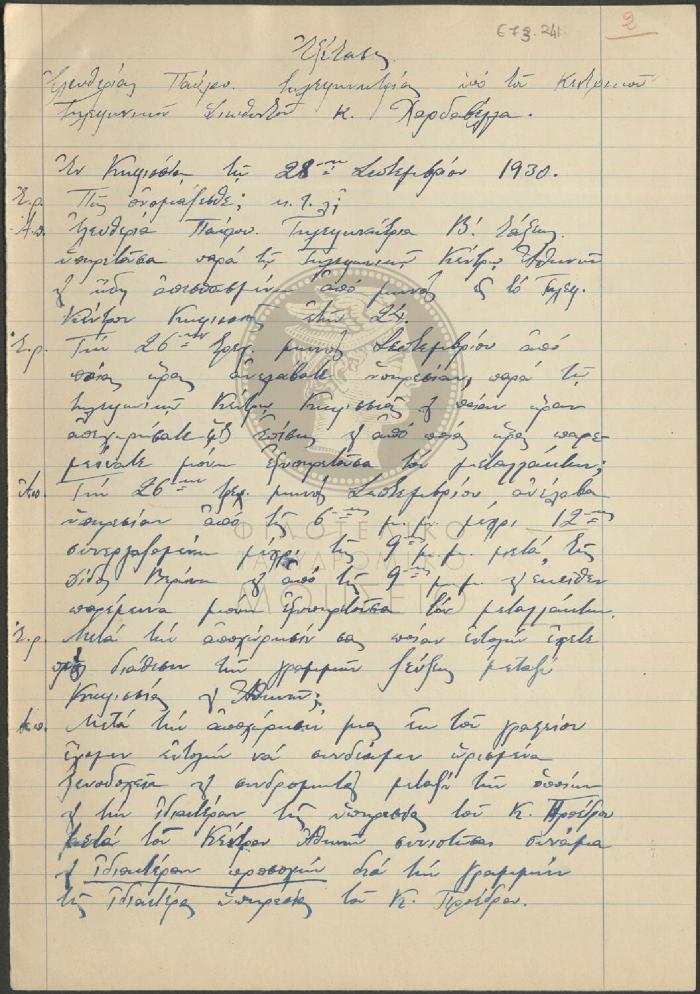 673.241
2
Ἐξέτασις
Ἐλευθερίας Παύρου τηλεφωνητρίας ὑπό τοῦ Κεντρικοῦ
Τηλεφωνικοῦ Διευθυντοῦ κ. Χαρδαβέλλα.
Ἐν Κηφισσίᾳ τῇ 28ῃ Σεπτεμβρίου 1930.
Ἐρ. Πῶς ὀνομάζεσθε; κ.τ.λ.
Ἀπ. Ἐλευθερία Παύρου Τηλεφωνήτρια Β. τάξεως
ὑπηρετοῦσα παρά τῷ Τηλεφωνικῷ Κέντρῳ Ἀθηνῶν
καί ἤδη ἀπεσπασμένη ἀπό μηνός εἰς τό Τηλεφ.
Κέντρον Κηφισσιᾶς ἐτῶν 24.
Ἐρ. Τήν 26ην τρεχ. μηνός Σεπτεμβρίου ἀπό
ποίας ὥρας ἀνελάβατε ὑπηρεσίαν παρά τῷ
τηλεφωνικῷ Κέντρῳ Κηφισσιᾶς καί ποίαν ὥραν
ἀπεχωρήσατε ἐπίσης καί ἀπό ποίας ὥρας παρε-
μείνατε μόνη ἐξυπηρετοῦσα τόν μεταλλάκτην;
Ἀπ. Τήν 26ην τρεχ. μηνός Σεπτεμβρίου ἀνέλαβα
ὑπηρεσίαν ἀπό τῆς 6ης μ.μ. μέχρι 12ης
συνεργαζομένη μέχρι τῆς 9ης μ.μ. μετά τῆς
δίδος Βεράνη καί ἀπό τῆς 9ης μ.μ. καί ἐκεῖθεν
παρέμεινα μόνη ἐξυπηρετοῦσα τόν μεταλλάκτην.
Ἐρ. Μετά τήν ἀποχώρησίν σας ποίαν ἐντολήν εἴχετε
πρός διάθεσιν τῶν γραμμῶν ζεύξεως μεταξύ
Κηφισσιᾶς καί Ἀθηνῶν;
Ἀπ. Μετά τήν ἀποχώρησίν μας ἐκ τοῦ γραφείου
ἔχομεν ἐντολήν νά συνδέωμεν ὡρισμένα
ξενοδοχεῖα καί συνδρομητάς μεταξύ τῶν ὁποίων
καί τήν ἰδιαιτέραν τῆς ὑπηρεσίας τοῦ κ. Προέδρου
μετά τοῦ Κέντρου Ἀθηνῶν συνιστῶσαι συνάμα
καί ἰδιαιτέραν προσοχήν διά τήν γραμμήν
τῆς ἰδιαιτέρας ὑπηρεσίας τοῦ κ. Προέδρου.
ΦΙΛΟΤΕΛΙΚΟ
ΤΑΧΥΔΡΟΜΙΚΟ
ΜΟΥΣΕΙΟ